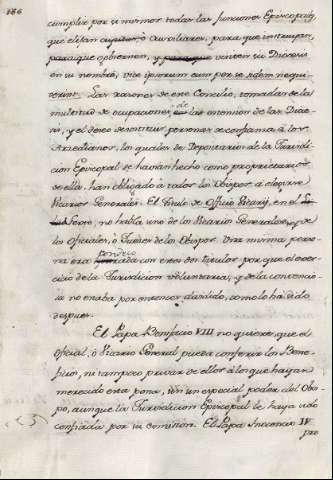 186
cumplir por si mismos todas las funciones Episcopales,
que elijan Auxiliares, para que
gobiernen, y visiten su Diocesis
en su nombre, vice ipsorum cum per se idem nequi-
verint. Las razones de este Concilio, tomadas de la
multitud de ocupaciones, de la extension de las Dioce-
sis, y el deseo de instituir personas de confianza à los
Arcedianos, los quales de Depositarios de la Jurisdic-
cion Episcopal se havian hecho como proprietarios
de ella, han obligado à todos los Obispos à elegirse
Vicarios Generales. El titulo de Officio Vicarij, en el
Sexto, no habla sino de los Vicarios Generales, y de
los Oficiales, ò Jueces de los Obispos. Una misma perso-
na era con estos dos titulos, por que el exer-
cicio de la Jurisdiccion voluntaria, y de la contencio-
sa no estaba por entonces dividido, como lo ha sido
despues.
El Papa Bonifacio VIII no quiere, que el
oficial, ò Vicario General pueda conferir los Bene-
ficios, ni tampoco privar de ellos à los que hayan
merecido esta pena, sin un especial poder del Obis-
po, aunque la Jurisdiccion Episcopal le haya sido
confiada por su comision. El Papa Inocencio IV